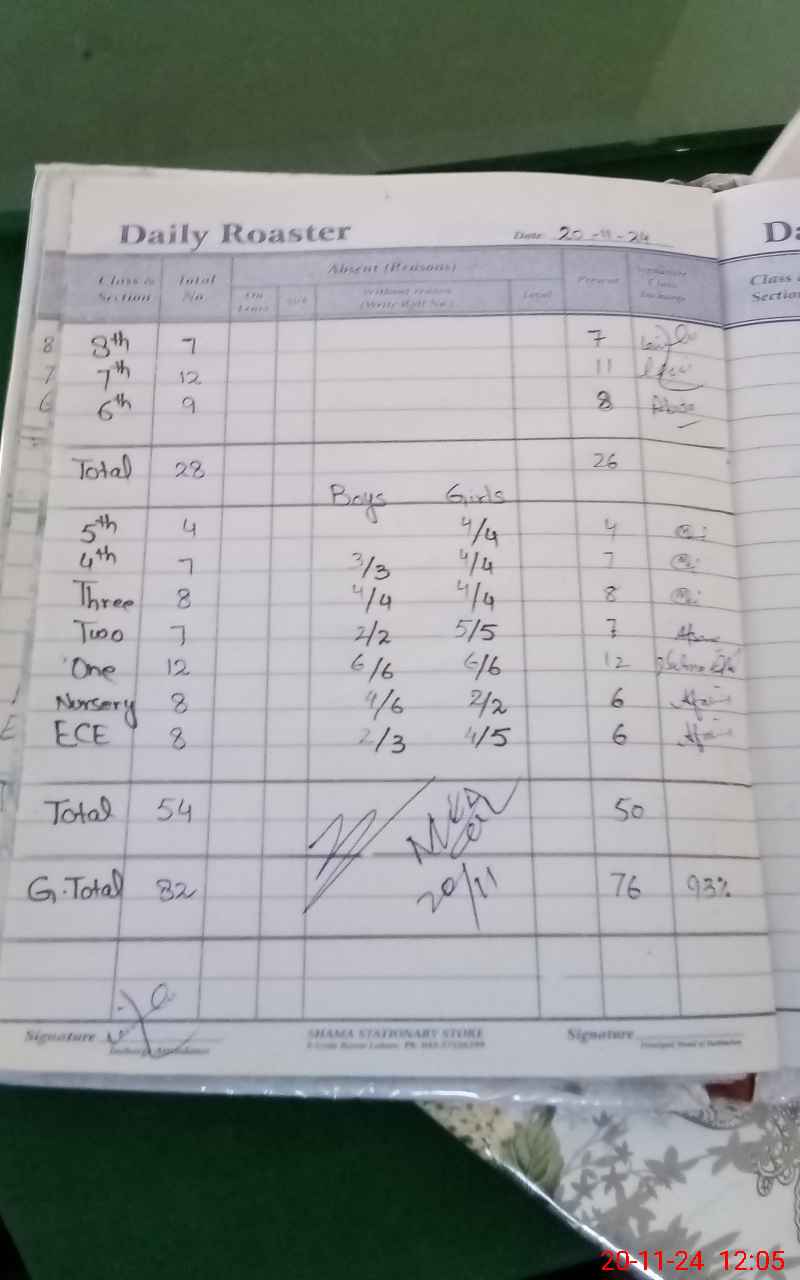 Daily Roaster Date 20-11-24
Class & Section Total No. Absent (Reasons) Present Signature Class Incharge
On Leave Sick Without reason (Write Roll No.) Total
8 8th 7 7
7 7th 12 11
6 6th 9 8
Total 28 26
Boys Girls
5th 4 4/4 4
4th 7 3/3 4/4 7
Three 8 4/4 4/4 8
Two 7 2/2 5/5 7
One 12 6/6 6/6 12
Nursery 8 4/6 2/2 6
ECE 8 2/3 4/5 6
Total 54 50
G.Total 82 76 93%
20/11
Signature Signature
Incharge Attendance SHAMA STATIONARY STORE
Da
Class &
Section
20-11-24 12:05